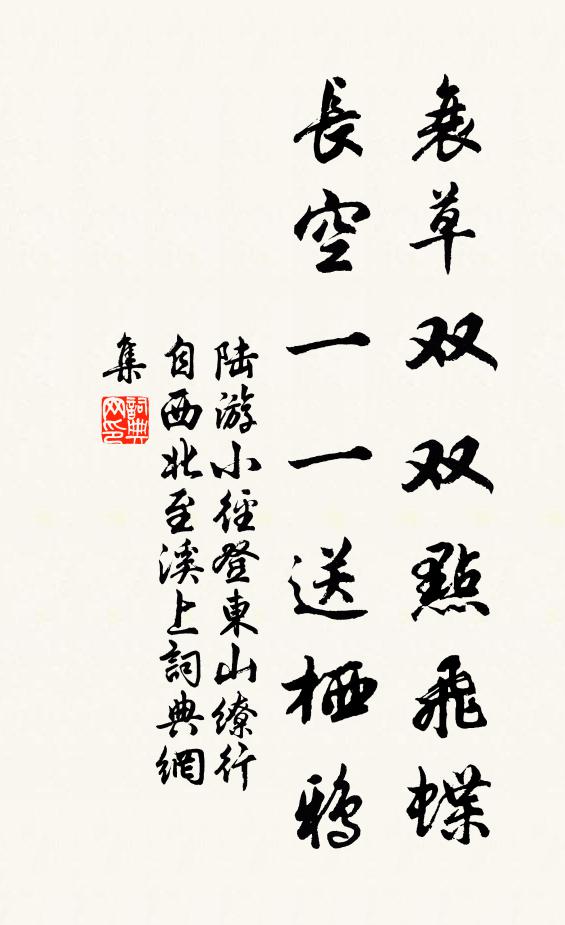 衰草双双點飛蝶
長空一一送栖鴉
陆游小徑登東山缭行
自西北至溪上詞典網
集
詞典
网印